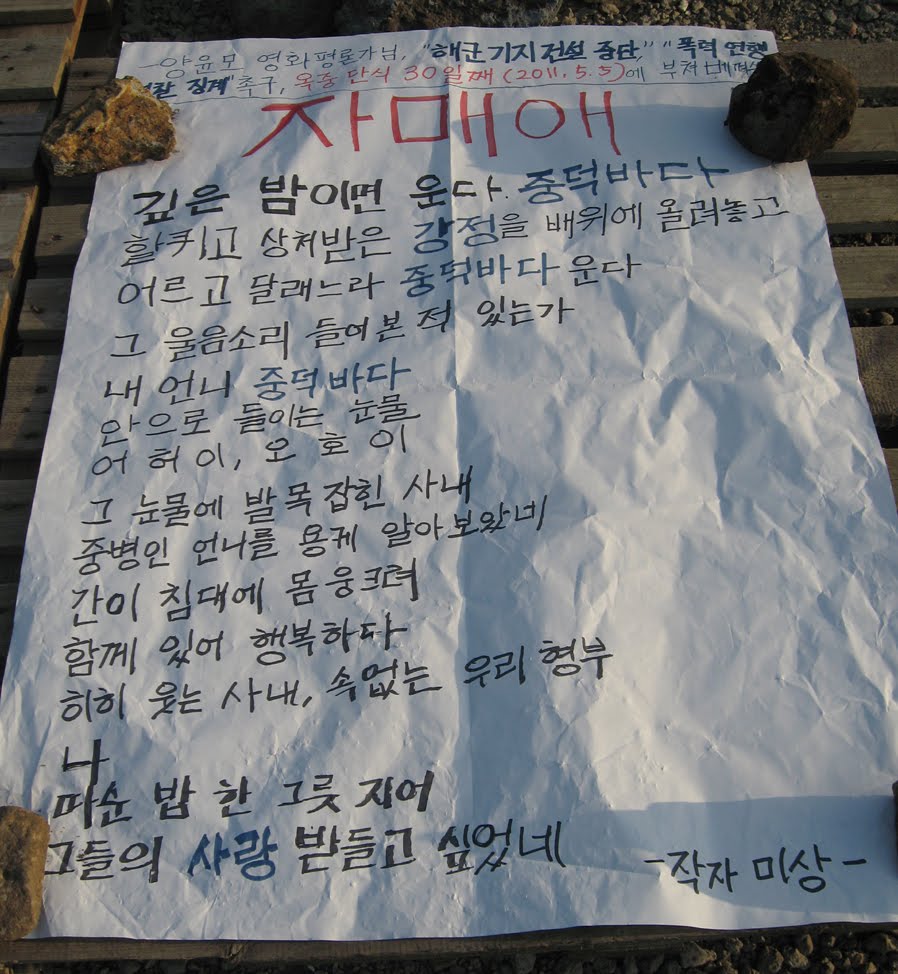 양윤모 영화평론가님, "해군기지 건설 중단," "폭력 연행
경찰 징계" 촉구, 옥중 단식 30일째 (2011. 5. 5)에 부쳐
자매애
깊은 밤이면 운다. 중덕바다
할퀴고 상처받은 강정을 배위에 올려놓고
어르고 달래느라 중덕바다 운다
그 울음소리 들어본 적 있는가
내 언니 중덕바다
안으로 들이는 눈물
어허이, 오호이
그 눈물에 발목 잡힌 사내
중병인 언니를 용케 알아보았네
간이 침대에 몸 웅크려
함께 있어 행복하다
히히 웃는 사내, 속없는 우리 형부
나
따순 밥 한 그릇 지어
그들의 사랑 받들고 싶었네
-작자 미상-